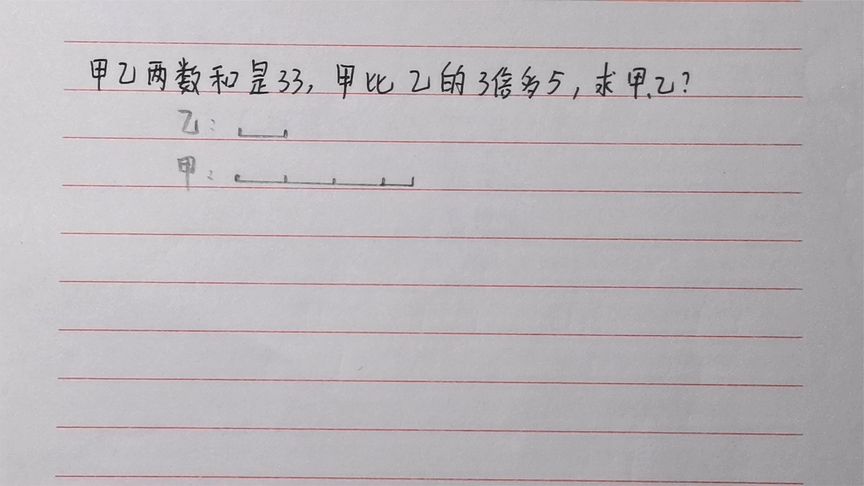 甲乙两数和是33,甲比乙的3倍多5,求甲、乙?
乙:
甲: